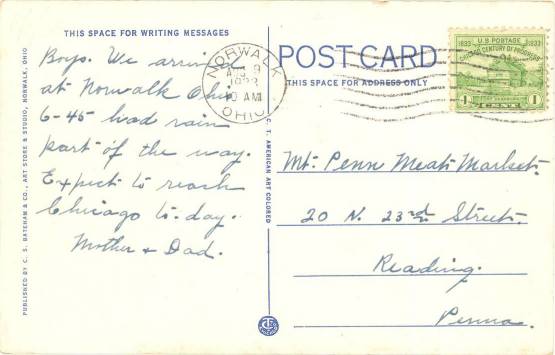 THIS SPACE FOR WRITING MESSAGES
Boys. We arrived
at Norwalk Ohio
6-45 had rain
part of the way.
Expect to reach
Chicago to-day.
Mother + Dad.
PUBLISHED BY C. S. BATEHAM & CO., ART STORE & STUDIO, NORWALK, OHIO
C. T. AMERICAN ART COLORED
NORWALK
9
10 AM
OHIO
POST CARD
THIS SPACE FOR ADDRESS ONLY
U.S. POSTAGE
1833 1933
CHICAGO CENTURY OF PROGRESS
FORT DEARBORN
1 CENT 1
Mt. Penn Meat Market.
20 N. 23rd Street.
Reading.
Penna.